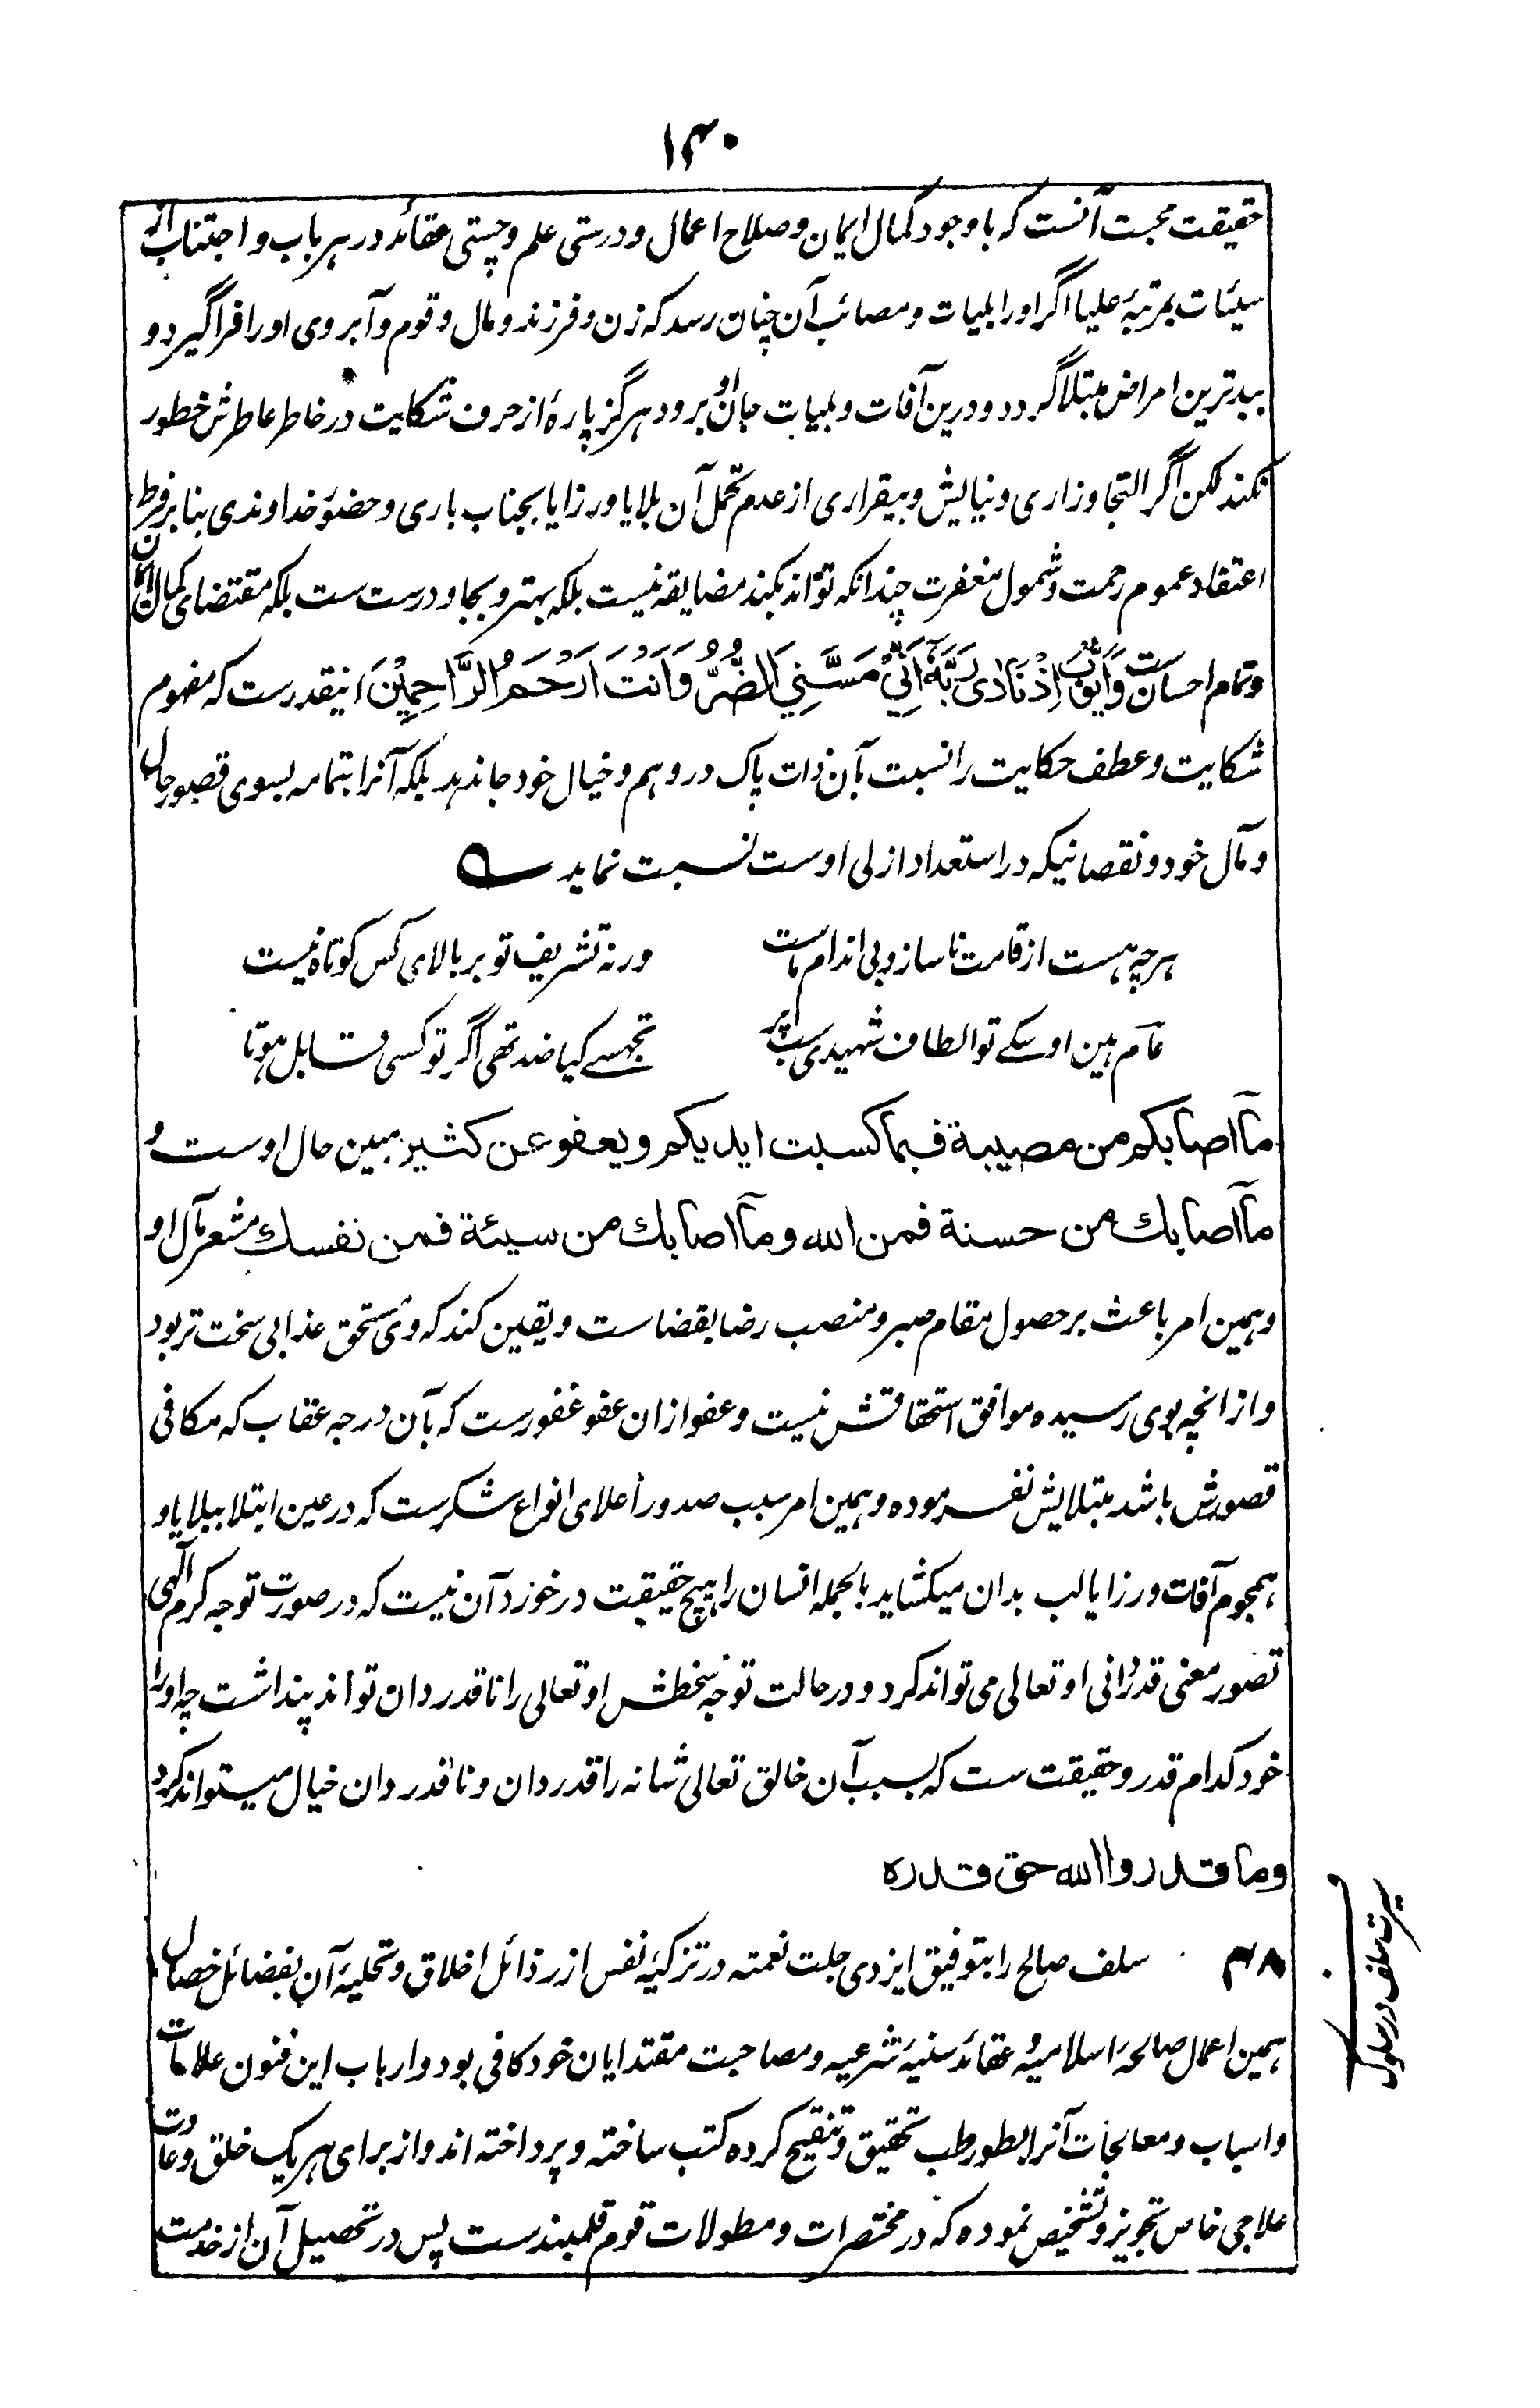 ۱۴۰
حقیقت محبت آنست که با وجود کمال ایمان و صلاح اعمال و درستی علم و چستی عقائد در هر باب و اجتناب از
سیئات بمرتبۂ علیا اگر او را بلیات و مصائب آن چنان رسد که زن و فرزند و مال و قوم و آبروی او را فراگیرد و
ببدترین امراض مبتلا گردد و درین آفات و بلیات جان او برود هرگز پارۂ از حرف شکایت در خاطر عاطرش خطور
نکند لکن اگر التجا و زاری و نیایش و بیقراری از عدم تحمل آن بلایا و رزایا بجناب باری و حضرت خداوندی بنابر فرط
اعتقاد عموم رحمت و شمول مغفرت چندانکه تواند بکند مضایقه نیست بلکه بهتر و بجا و درست ست بلکه مقتضای کمال ایمان
و تمام احسان ست وَاَيُّوْبَ اِذْ نَادٰى رَبَّهٗٓ اَنِّيْ مَسَّنِيَ الضُّرُّ وَاَنْتَ اَرْحَمُ الرَّاحِمِيْنَ اینقدرست که مفهوم
شکایت و عطف حکایت را نسبت بآن ذات پاک در وهم و خیال خود جا ندهد بلکه آنرا بتمامه بسوی قصور حال
و مآل خود و نقصانیکه در استعداد ازلی اوست نسبت نماید ؎
هرچه هست از قامت ناساز و بی اندام ماست ورنه تشریف تو بر بالای کس کوتاه نیست
عام هین اوسکے تو الطاف شهیدی سب پر تجهسے کیا ضد تهی اگر تو کسی قابل هوتا
ما اصابكم من مصيبة فبما كسبت ايديكم ويعفو عن كثير مبین حال اوست و
ما اصابك من حسنة فمن الله وما اصابك من سيئة فمن نفسك مشعر مآل او
و همین امر باعث بر حصول مقام صبر و منصب رضا بقضاست و یقین کند که وی مستحق عذابی سخت تر بود
و از انچه بوی رسیده موافق استحقاقش نیست و عفو ازان عفو غفورست که بآن درجه عقاب که مکافی
قصورش باشد مبتلایش نفرموده و همین امر سبب صدور اعلای انواع شکرست که در عین ابتلا ببلایا و
هجوم آفات و رزایا لب بدان میکشاید بالجمله انسان را هیچ حقیقت درخورد آن نیست که در صورت توجه کرم الهی
تصور معنی قدردانی او تعالی می تواند کرد و در حالت توجه سخطش او تعالی را ناقدردان تواند پنداشت چه او را
خود کدام قدر و حقیقت ست که بسبب آن خالق تعالی شانه را قدردان و ناقدردان خیال میتواند کرد
وما قدروا الله حق قدره
۳۸ سلف صالح را بتوفیق ایزدی جلت نعمته در تزکیۂ نفس از رذائل اخلاق و تحلیۂ آن بفضائل خصال
همین اعمال صالحۂ اسلامیه و عقائد سنیۂ شرعیه و مصاحبت مقتدایان خود کافی بود و ارباب این فنون علامات
و اسباب و معالجات آنرا بطور طب تحقیق و تنقیح کرده کتب ساخته و پرداخته اند و از برای هر یک خلق و عادت
علاجی خاص تجویز و تشخیص نموده که در مختصرات و مطولات قوم قلمبندست پس در تحصیل آن از خدمت
سیرت سلف در سلوک